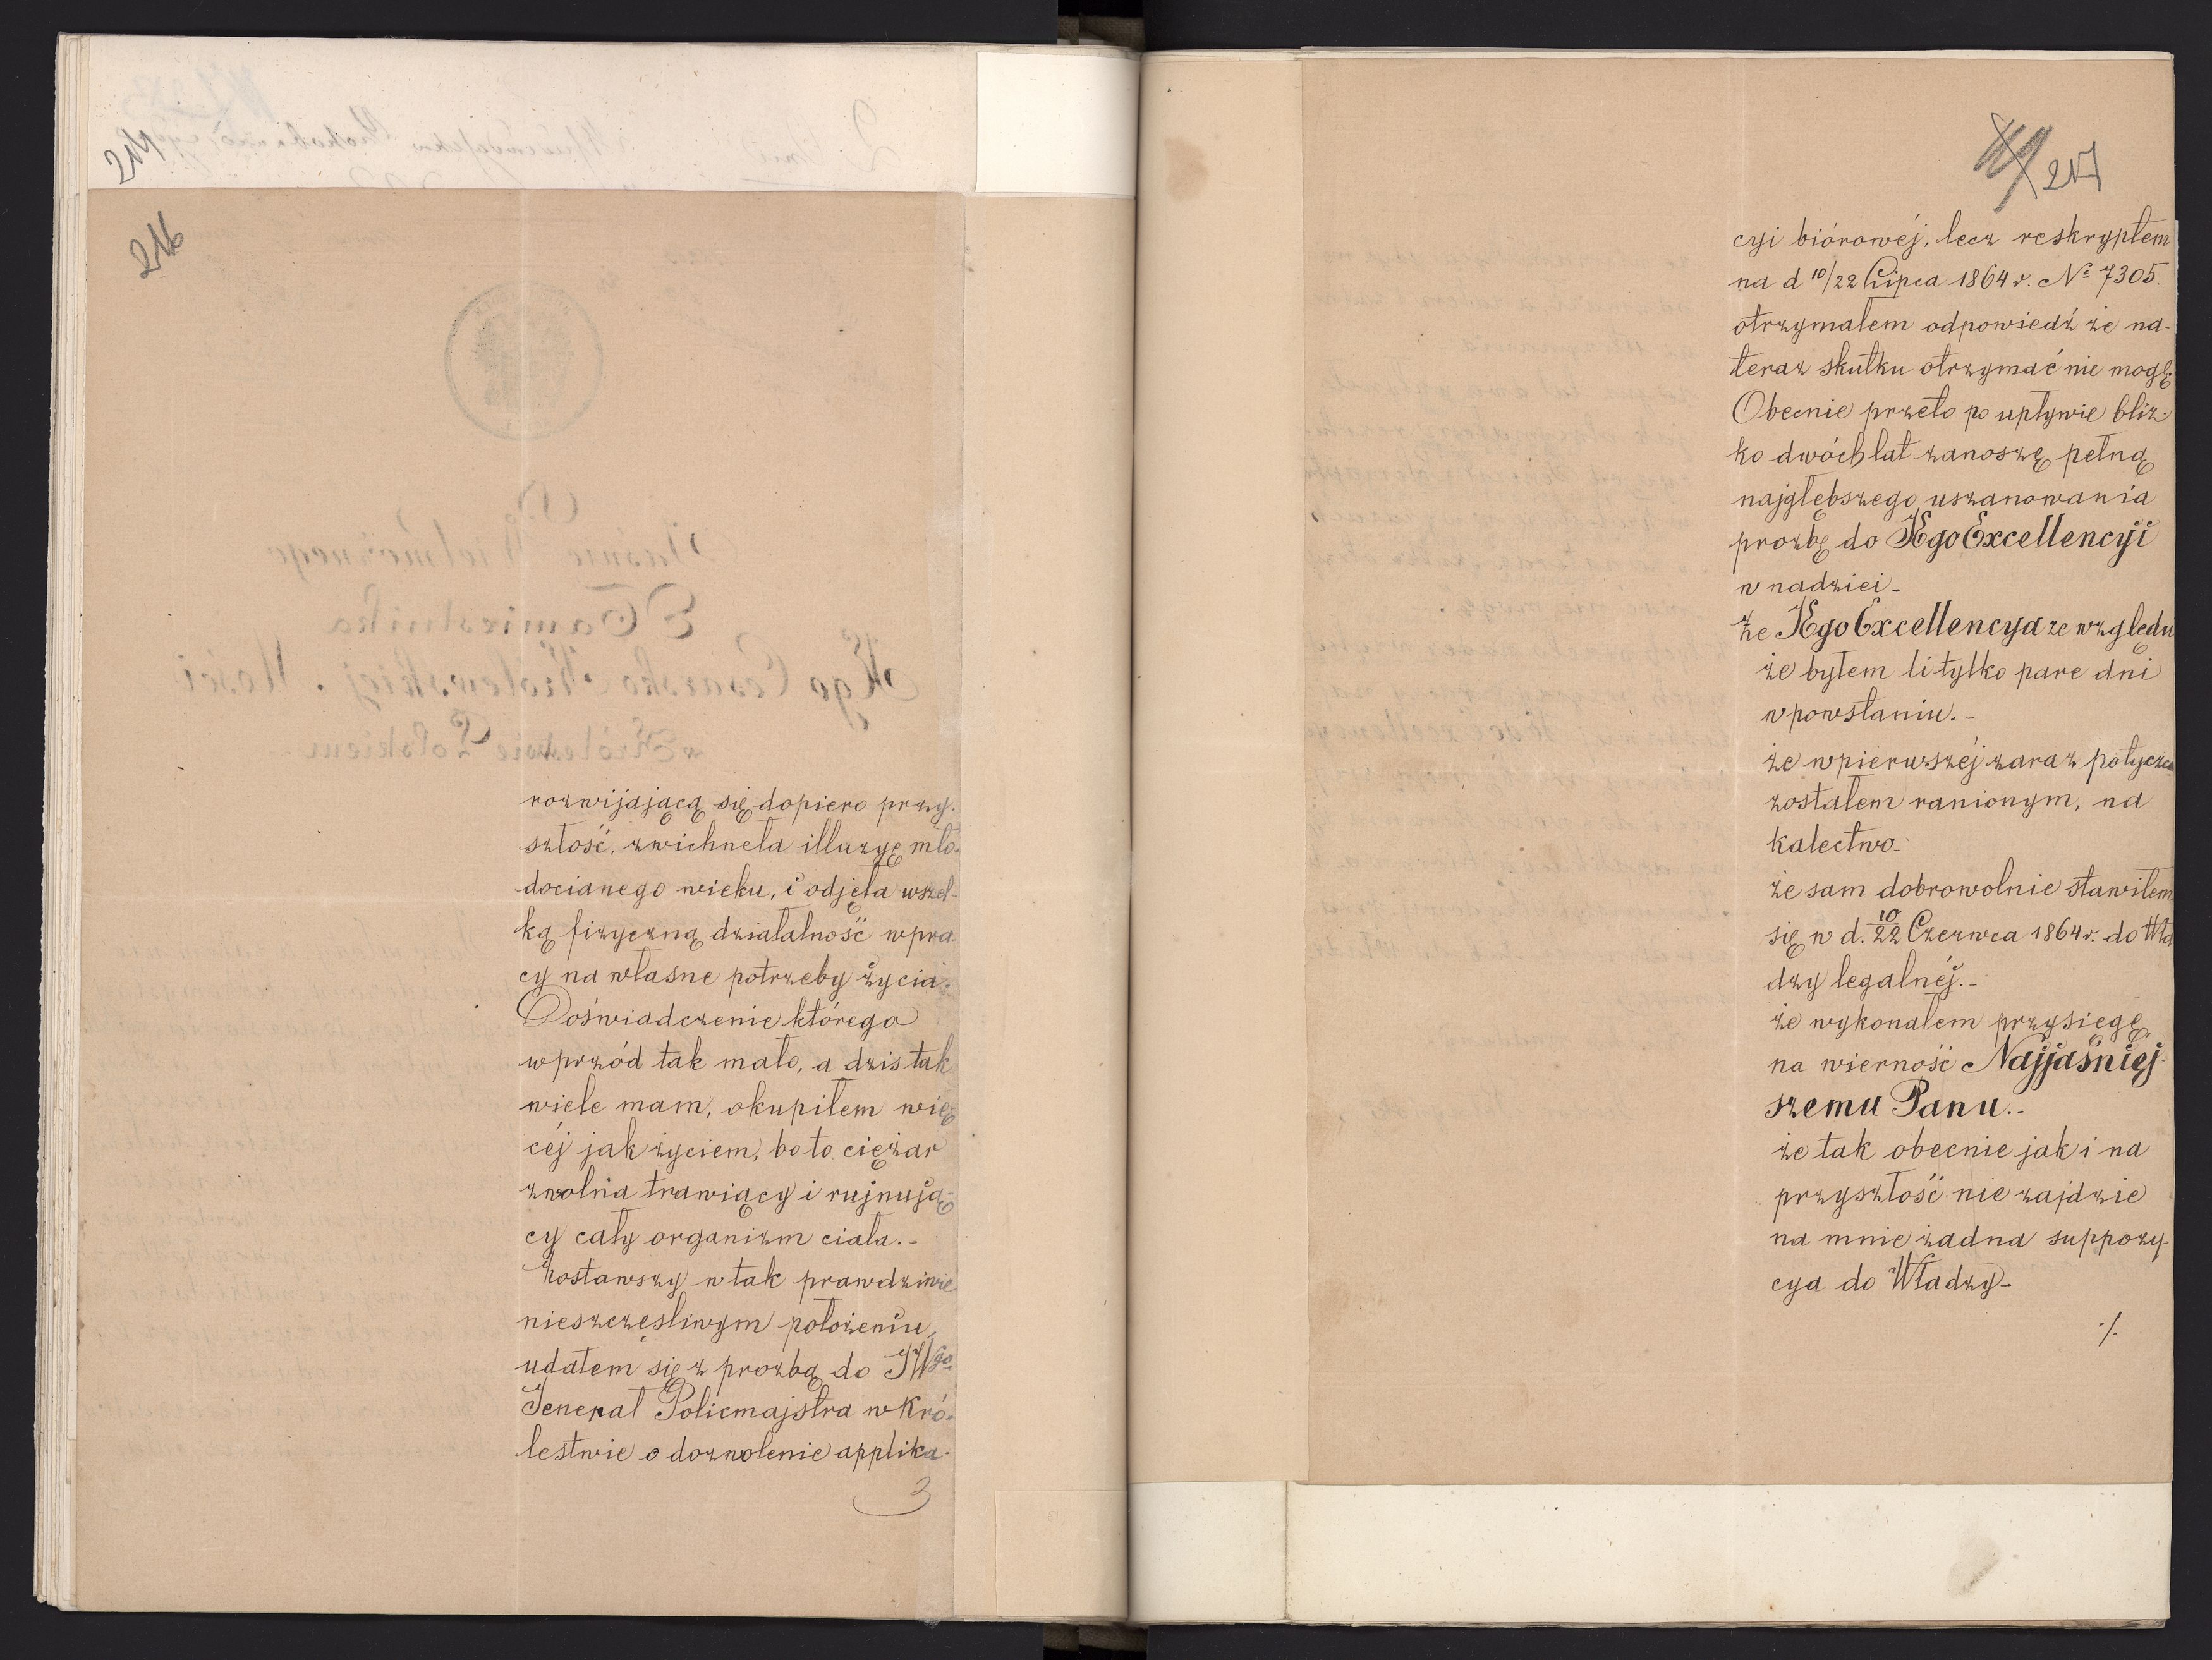 214
216
rozwijającą się dopiero przy-
szłość, zwichnęła illuzyę mło-
docianego wieku, i odjęła wszel-
ką fizyczną działalność w pra-
cy na własne potrzeby życia.
Doświadczenie którego
wprzód tak mało, a dzis tak
wiele mam, okupiłem wię-
céj jak życiem, bo to ciężar
zwolna trawiący i rujnują-
cy cały organizm ciała.-
Zostawszy w tak prawdziwie
nieszczęsliwym położeniu,
udałem się z prozbą do JWgo
Jenerał Policmajstra w Kró-
lestwie o dozwolenie applika-
3
217
cyi biórowéj, lecz reskryptem
na d 10/22 Lipca 1864 r. No 7305.
otrzymałem odpowiedź że na-
teraz skutku otrzymać nie mogę
Obecnie przeto po upływie bliz-
ko dwóch lat zanoszę pełną
najgłębszego uszanowania
prozbę do JEgo Excellencyi
w nadziei-
że JEgo Excellencya ze względu
że byłem li tylko pare dni
w powstaniu.-
że w pierwszéj zaraz potyczce
zostałem ranionym, na
kalectwo-
że sam dobrowolnie stawiłem
się w d. 10/22 Czerwca 1864 r. do Wła
dzy legalnéj.-
że wykonałem przysięgę
na wierność Najjaśniej-
szemu Panu.-
że tak obecnie jak i na
przyszłość nie zajdzie
na mnie żadna suppozy-
cya do Władzy-
./.